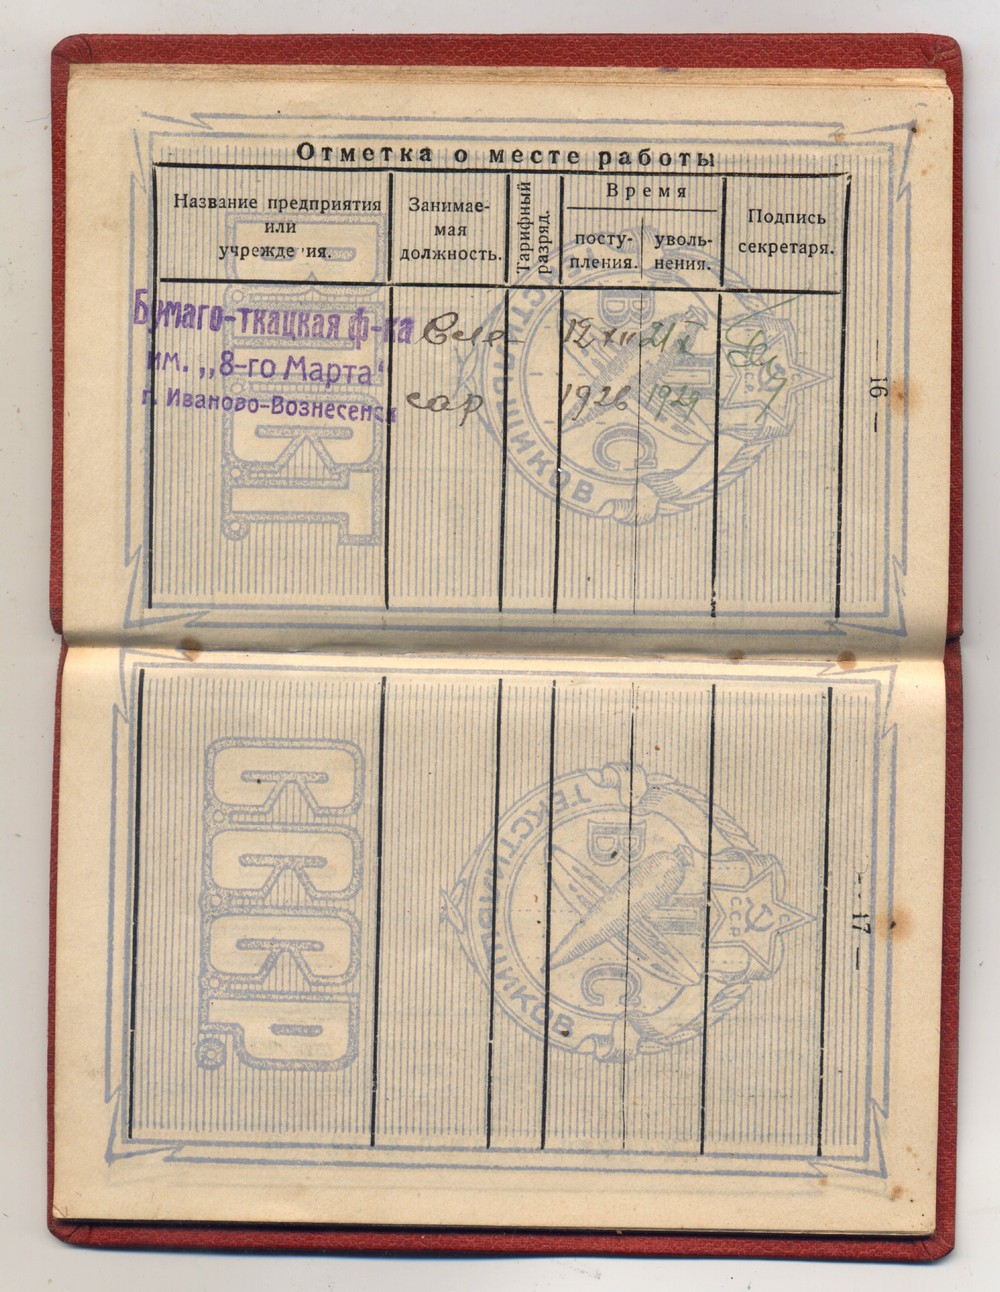 Отметка о месте работы
Название предприятия
или
учрежде ия.
Занимае-
мая
должность.
Тарифный
разряд.
Время
посту-
пления.
уволь-
нения.
Подпись
секретаря.
Бумаго-ткацкая ф-ка
им. „8-го Марта“
г. Иваново-Вознесенск
сар
12 XII
1926
21 X
1929
16 —
ВПКТ
ТЕКСТИЛЬЩИКОВ
В
П
С
СССР
— 17 —
СССР
ТЕКСТИЛЬЩИКОВ
В
П
С
СССР